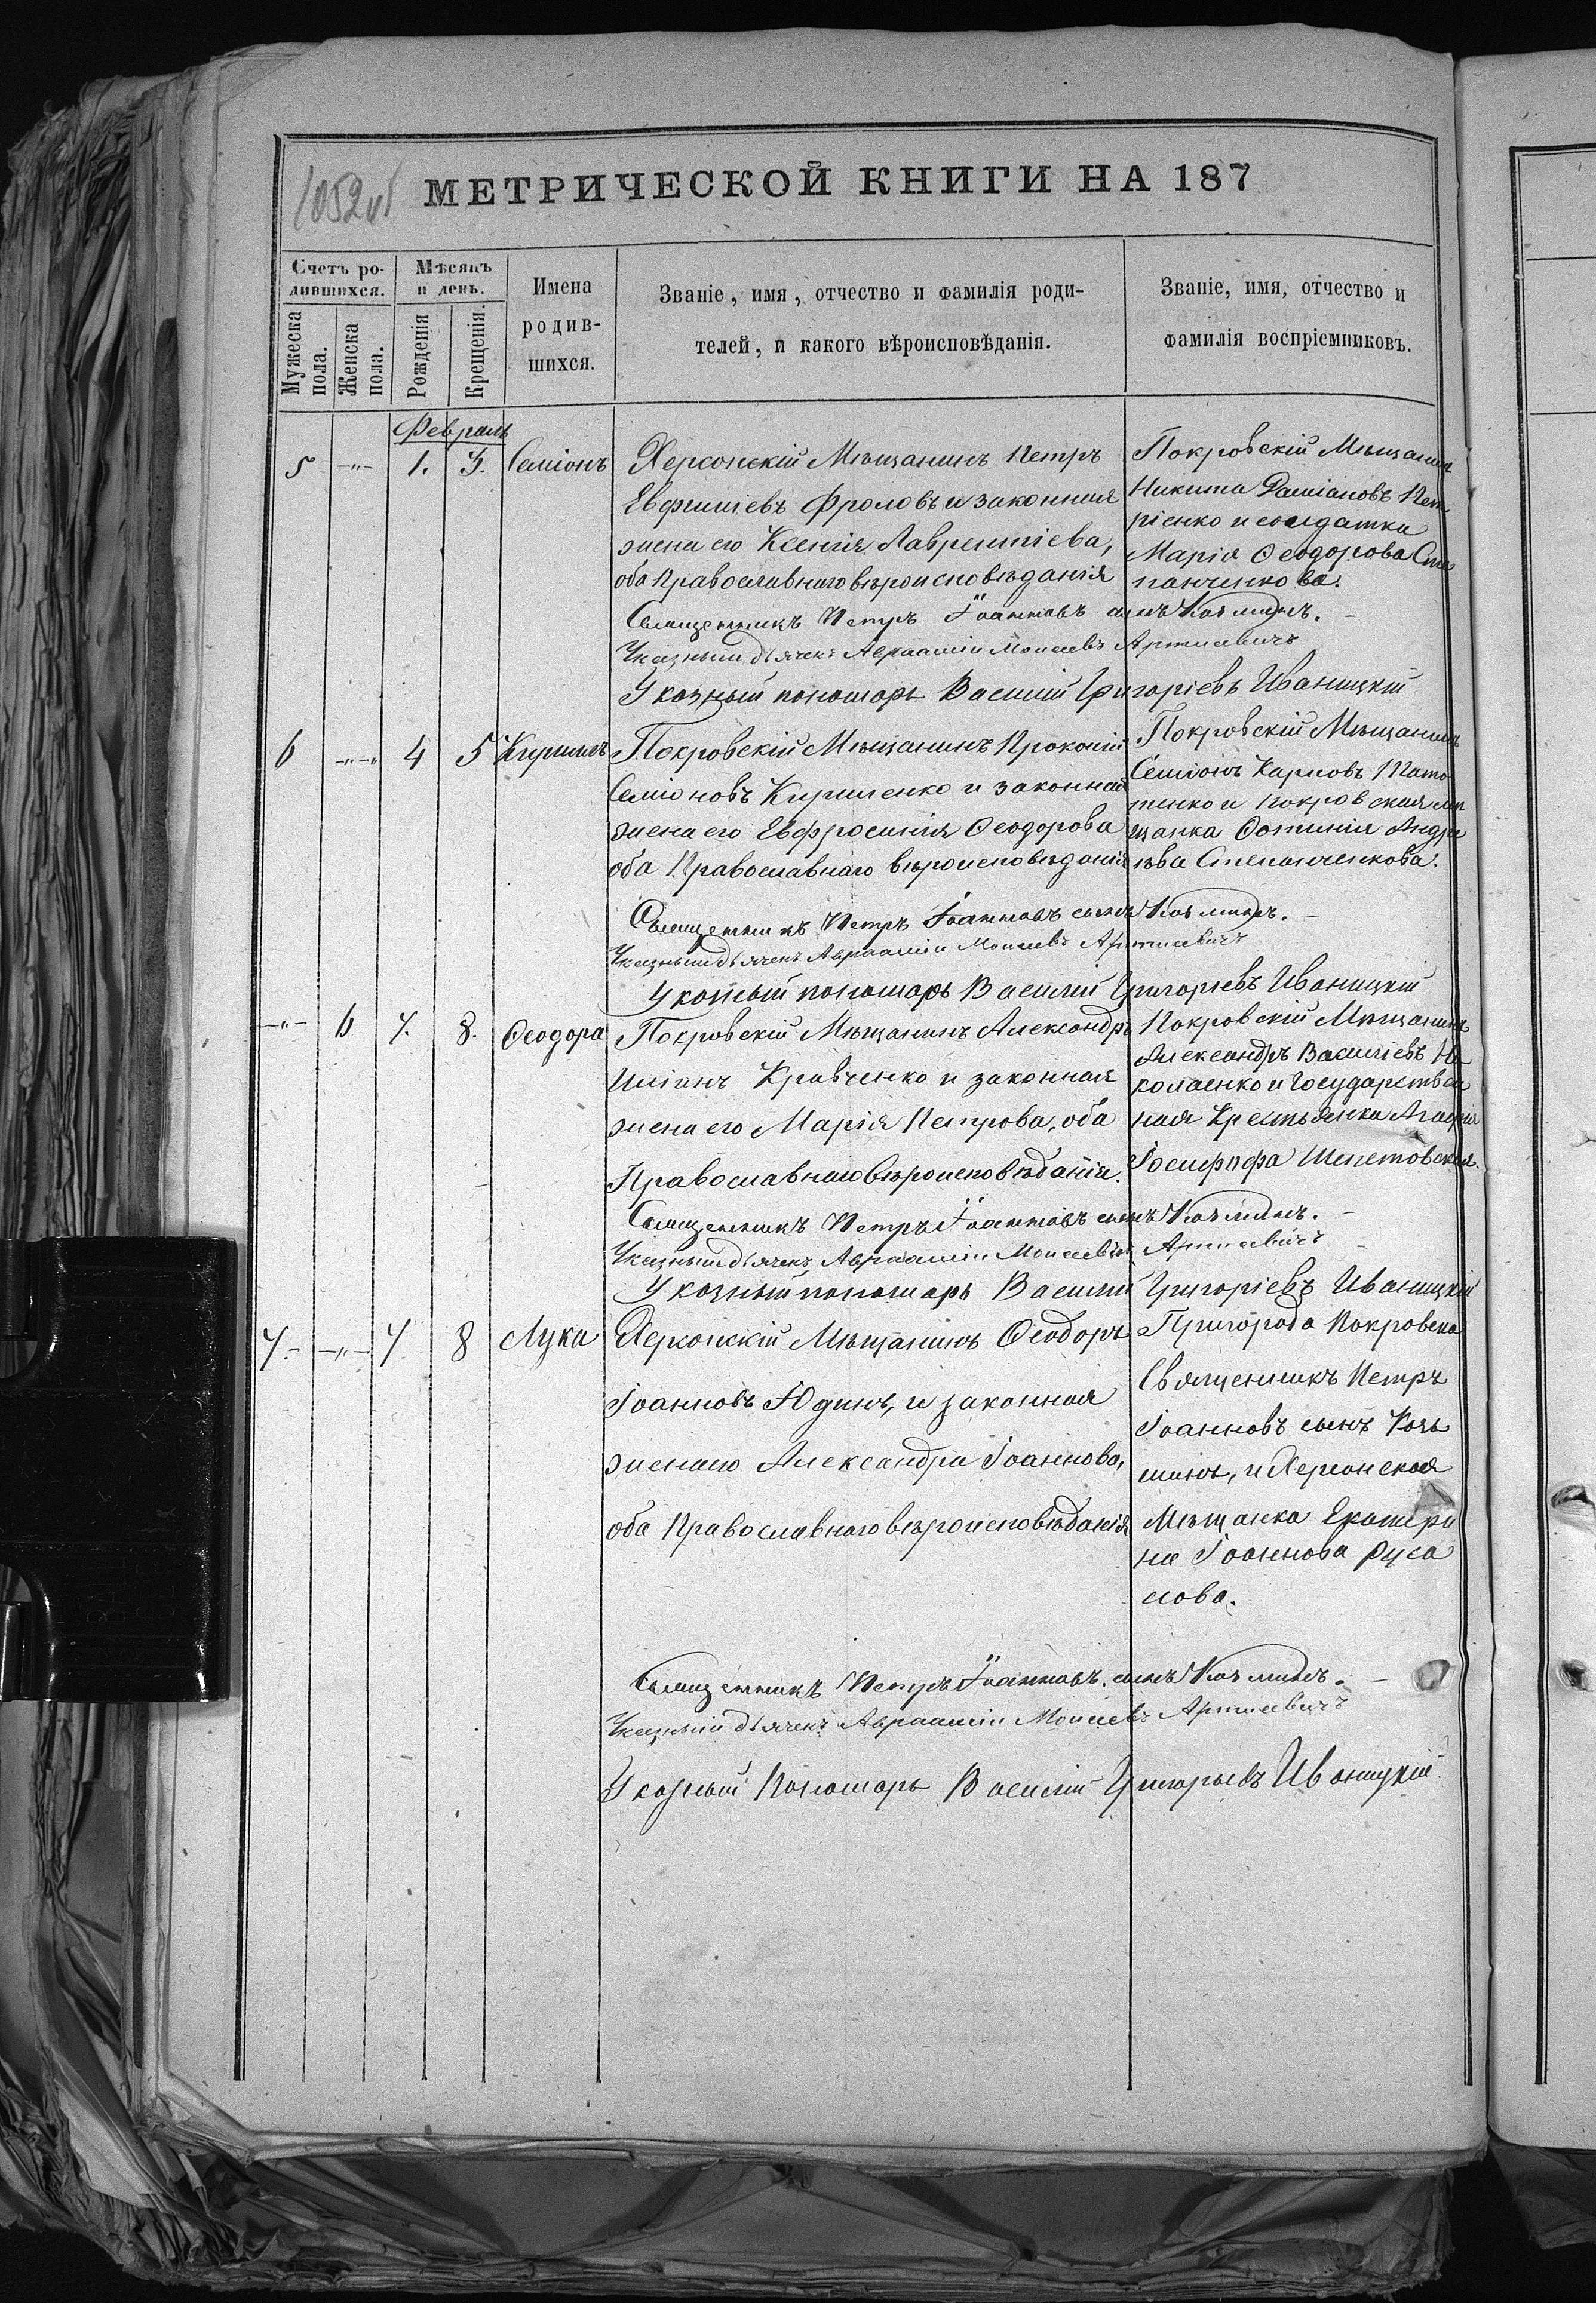 1052 об
МЕТРИЧЕСКОЙ КНИГИ НА 187
Счетъ ро-
дившихся.
Мужеска
пола.
Женска
пола.
Мѣсяцъ
и день.
Рожденія
Крещенія.
Имена
родив-
шихся.
Званіе, имя, отчество и фамилія роди-
телей, и какого вѣроисповѣданія.
Званіе, имя, отчество и
фамилія воспріемниковъ.
Февраль
5 -"- 1. 3. Семіонъ
Херсонскій Мѣщанинъ Петръ
Евфиміевъ Фроловъ и законная
жена его Ксенія Лаврентіева,
оба Православнаго вѣроисповѣданія
Покровскій Мѣщанин
Никита Даміановъ Пет
ріенко и солдатка
Марія Ѳеодорова Сте
панченкова.
Священникъ Петръ Іоанновъ сынъ Козминъ.
Указный дьячекъ Авраамій Моисеевъ
Указный пономарь Василій Григоріевъ Иваницкій
6 -"- 4 5 Кириллъ
Покровскій Мѣщанинъ Прокопій
Семіоновъ Кириленко и законная
жена его Евфросинія Ѳеодорова
оба Православнаго вѣроисповѣданія
Покровскій Мѣщанинъ
Семіонъ Карповъ
и покровская мѣ
щанка Фотинія Андре
ева Степанченкова.
Священникъ Петръ Іоанновъ сынъ Козминъ.
Указный дьячекъ Авраамій Моисеевъ
Указный пономарь Василій Григорьевъ Иваницкій
-"- 6 7. 8. Ѳеодора
Покровскій Мѣщанинъ Александръ
Кравченко и законная
жена его Марія Петрова, оба
Православнаго вѣроисповѣданія.
Покровскій Мѣщанинъ
Александръ Василіевъ Ни
колаенко и Государствен
ная Крестьянка
Іосифова Шепетовская.
Священникъ Петръ Іоанновъ сынъ Козминъ.
Указный дьячекъ Авраамій Моисеевъ
Указный пономарь Василій Григоріевъ Иваницкій
7.- -"- 7 8 Лука
Херсонскій Мѣщанинъ Ѳеодоръ
Іоанновъ Юдинъ, и законная
жена его Александра Іоаннова,
оба Православнаго вѣроисповѣданія
Пригорода Покровска
Священникъ Петръ
Іоанновъ сынъ Козь
минъ, и Херсонская
Мѣщанка Екатери
на Іоаннова Руса
лова.
Священникъ Петръ Іоанновъ сынъ Козминъ.
Указный дьячекъ Авраамій Моисеевъ
Указный Пономарь Василій Григорьевъ Иваницкій